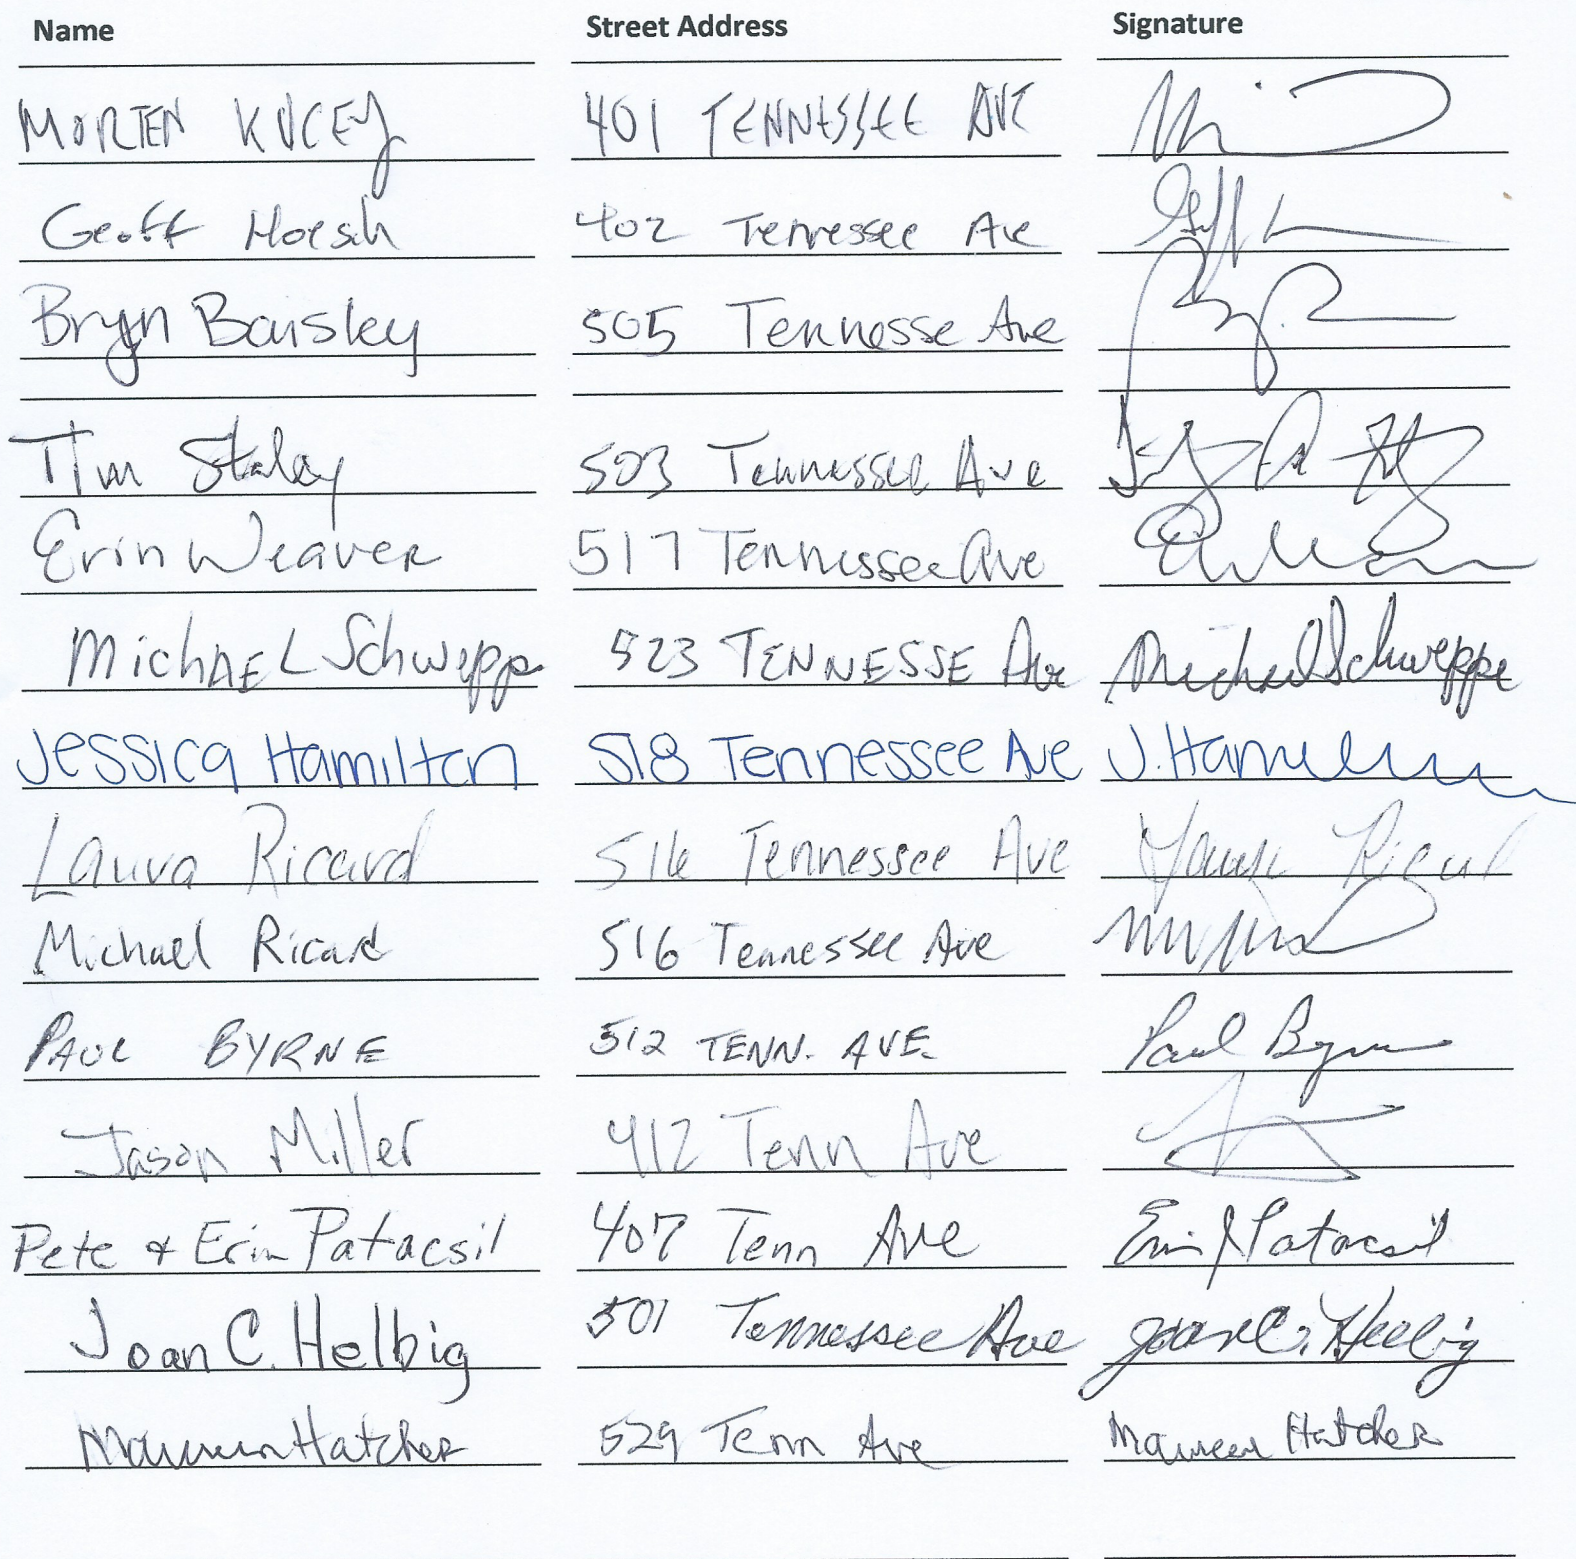 Name Street Address Signature
MORTEN KUCEY 401 TENNESSEE AVE
Geoff Hoesch 402 Tennessee Ave
Bryn Bausley 505 Tennesse Ave
Tim Staley 503 Tennessee Ave
Erin Weaver 517 Tennessee Ave
MichAEL Schweppe 523 TENNESSE Ave Michael Schweppe
Jessica Hamilton 518 Tennessee Ave J. Hamil
Laura Ricard 516 Tennessee Ave Laura Ricard
Michael Ricard 516 Tennessee Ave
PAUL BYRNE 512 TENN. AVE. Paul Byrne
Jason Miller 412 Tenn Ave
Pete & Erin Patacsil 407 Tenn Ave Erin J Patacsil
Joan C. Helbig 501 Tennessee Ave Joan C. Helbig
Maureen Hatcher 529 Tenn Ave Maureen Hatcher